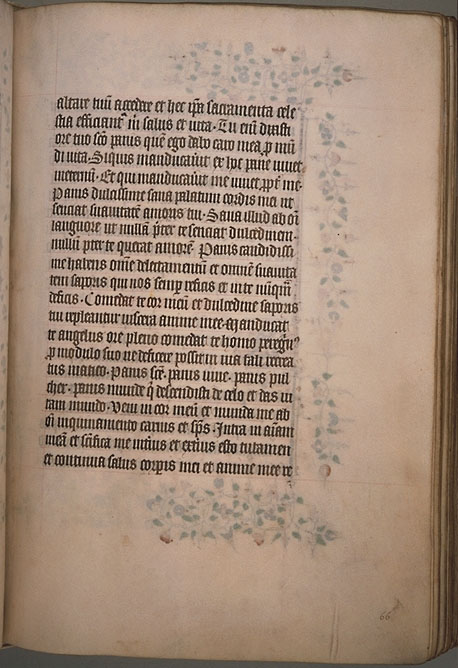 altare tuū accedere et hec ip̄a sacramenta cele
stia efficiant᷑ m̄ salus et uita. Tu em̄ dixisti
ore tuo sc̄o panis quē ego dabo caro mea ꝑ mūdi
di uita. Siquis manducau̾it ex hoc pane uiuet
ineternū. Et qui manducau̾it me uiuet ꝓpt̾ me.
Panis dulcissime sana palatum cordis mei ut
senciat suauitatē amoris tui. Sana illud ab oī
languore ut nullā p̄ter te senciat dulcedinem.
nullū p̄ter te querat amorē. Panis candidissi
me habens om̄e delectamentū et omnē suauita
tem saporis qui nos semp̲ reficis et in te nūqm̄
deficis. Comedat te cor meū et dulcedine saporis
tui repleantur uiscera anime mee. Manducat
te angelus ore pleno comedat te homo peregn̾ꝰ
ꝑ modulo suo ne deficere possit in uia tali recrea
tus uiatico. Panis sc̄e. panis uiue. panis pul
cher. panis munde q̇ descendisti de celo et das ui
tam mundo. Veni in cor meū et munda me ab
oī inquinamento carnis et sp̄s. Intra in aīam
meā et sc̄ifica me int̾ius et ext̾ius esto tutamen
et continua salus corp̲is mei et anime mee re
66